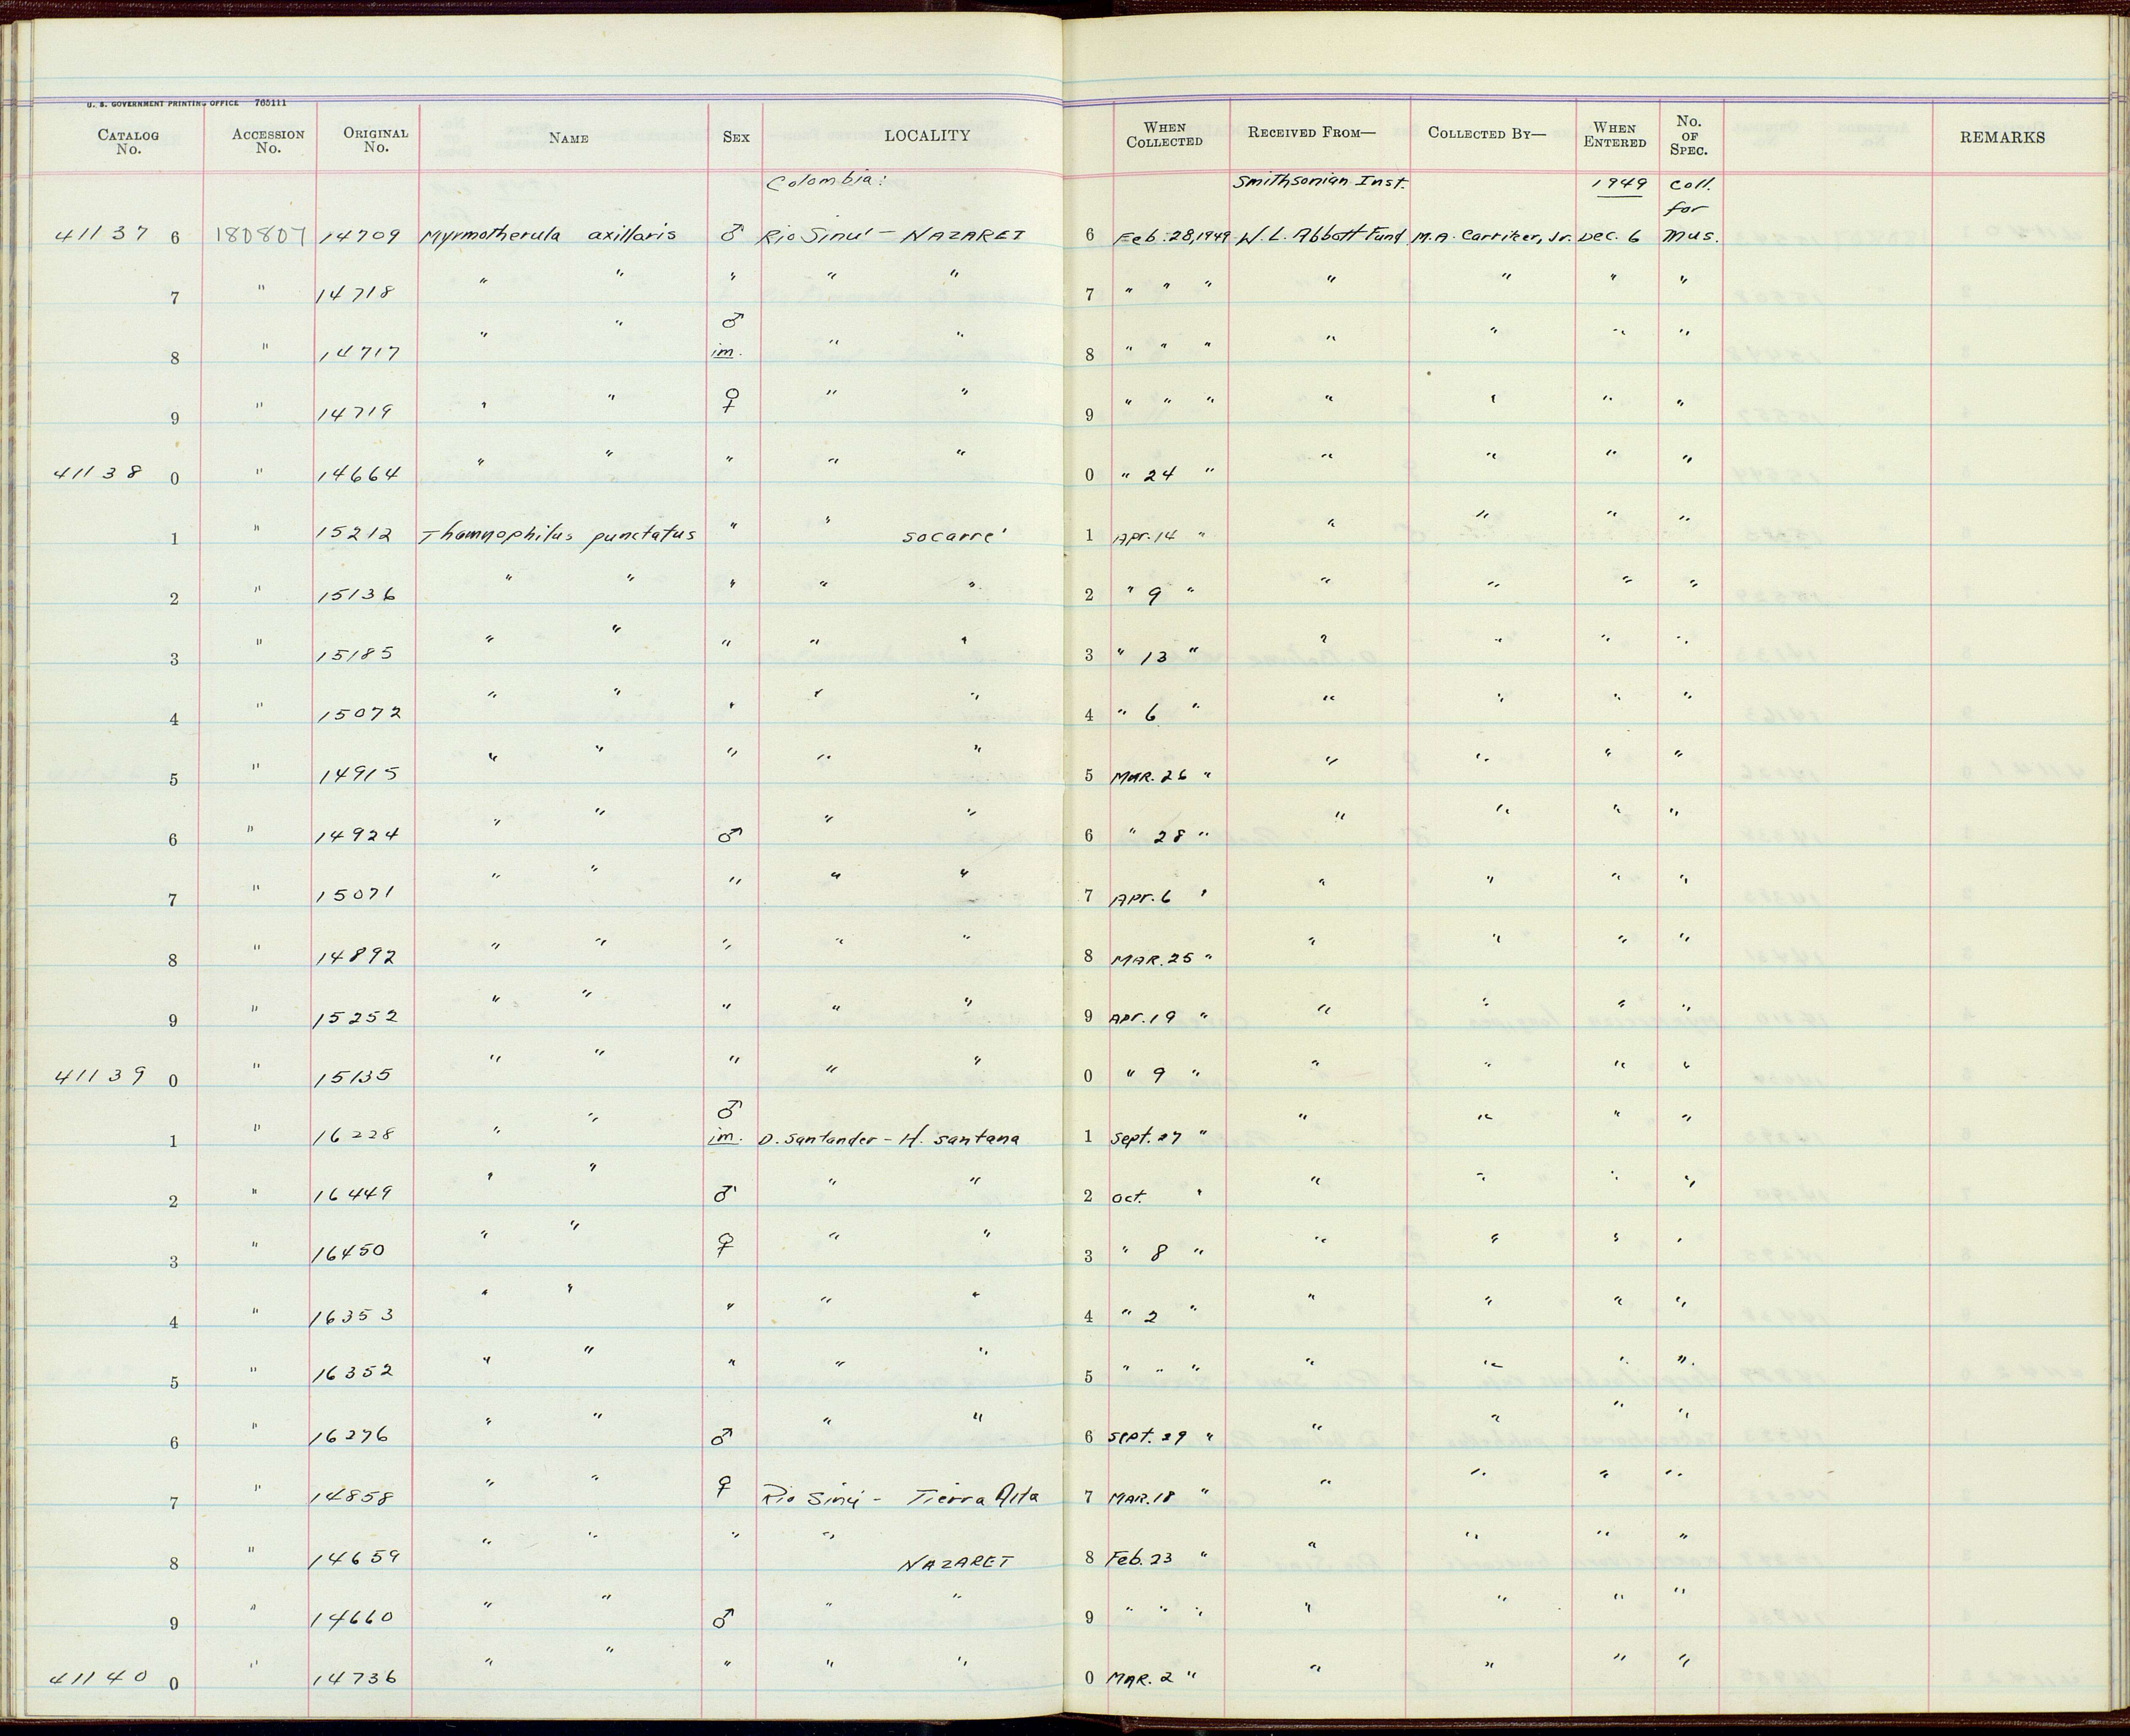 U. S. GOVERNMENT PRINTING OFFICE 765111
CATALOG No. ACCESSION No. ORIGINAL No. NAME SEX LOCALITY WHEN COLLECTED RECEIVED FROM— COLLECTED BY— WHEN ENTERED No. OF SPEC. REMARKS
Colombia: Smithsonian Inst. 1949 Coll. for
41137 6 180807 14709 Myrmotherula axillaris ♂ Rio Sinu' - NAZARET 6 Feb. 28, 1949 W. L. Abbott Fund M.A. Carriker, Jr. Dec. 6 Mus.
7 " 14718 " " " " " 7 " " " " " " "
8 " 14717 " " ♂ im. " " 8 " " " " " " "
9 " 14719 " " ♀ " " 9 " " " " " " "
41138 0 " 14664 " " " " " 0 " 24 " " " " "
1 " 15212 Thamnophilus punctatus " " Socarre' 1 Apr. 14 " " " " "
2 " 15136 " " " " " 2 " 9 " " " " "
3 " 15185 " " " " " 3 " 13 " " " " "
4 " 15072 " " " " " 4 " 6 " " " " "
5 " 14915 " " " " " 5 MAR. 26 " " " " "
6 " 14924 " " ♂ " " 6 " 28 " " " " "
7 " 15071 " " " " " 7 Apr. 6 " " " " "
8 " 14892 " " " " " 8 MAR. 25 " " " " "
9 " 15252 " " " " " 9 Apr. 19 " " " " "
41139 0 " 15135 " " " " " 0 " 9 " " " " "
1 " 16228 " " ♂ im. D. Santander - H. Santana 1 Sept. 27 " " " " "
2 " 16449 " " ♂ " " 2 Oct. " " " " "
3 " 16450 " " ♀ " " 3 " 8 " " " " "
4 " 16353 " " " " " 4 " 2 " " " " "
5 " 16352 " " " " " 5 " " " " " " "
6 " 16276 " " ♂ " " 6 Sept. 29 " " " " "
7 " 14858 " " ♀ Rio Sinú - Tierra Alta 7 MAR. 18 " " " " "
8 " 14659 " " " " NAZARET 8 Feb. 23 " " " " "
9 " 14660 " " ♂ " " 9 " " " " " " "
41140 0 " 14736 " " " " " 0 MAR. 2 " " " " "